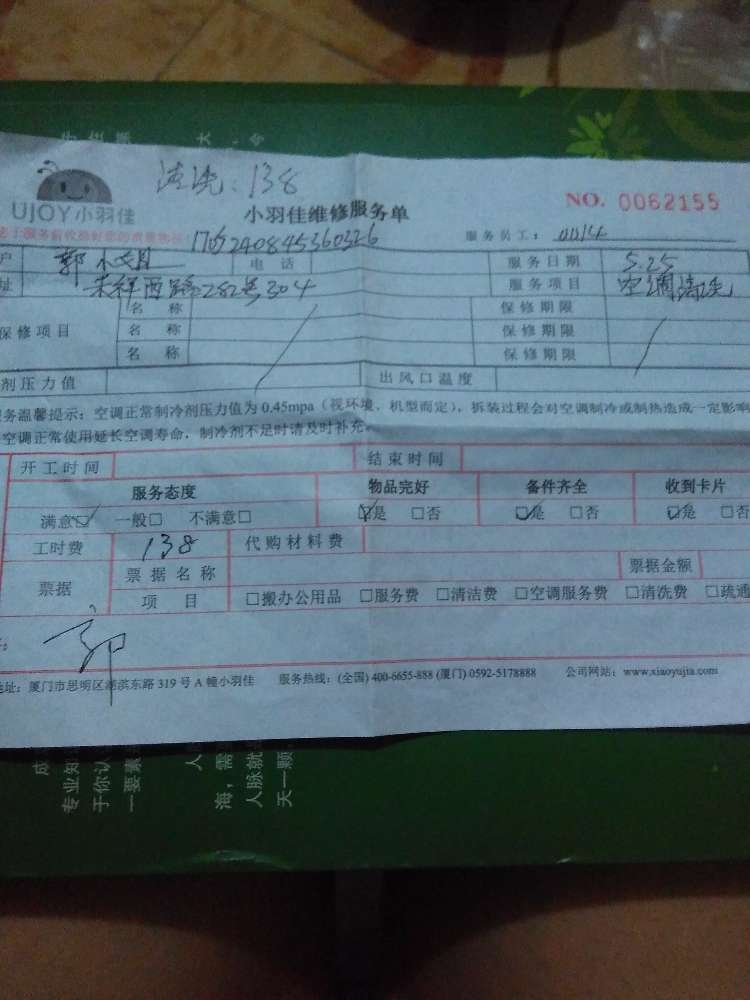 清洗:138
UJOY小羽佳
小羽佳维修服务单
NO. 0062155
服务员工:
电话
服务日期 5.25
西路282号304
服务项目 空调清洗
保修项目 名称 保修期限
名称 保修期限
名称 保修期限
剂压力值 出风口温度
务温馨提示:空调正常制冷剂压力值为 0.45mpa(视环境、机型而定),拆装过程会对空调制冷或制热造成一定影响
空调正常使用延长空调寿命,制冷剂不足时请及时补充。
开工时间 结束时间
服务态度 物品完好 备件齐全 收到卡片
满意☑ 一般□ 不满意□ ☑是 □否 ☑是 □否 ☑是 □否
工时费 138 代购材料费
票据 票据名称 票据金额
项目 □搬办公用品 □服务费 □清洁费 □空调服务费 □清洗费 □疏通
地址:厦门市思明区湖滨东路 319 号 A 幢小羽佳 服务热线:(全国) 400-6655-888 (厦门) 0592-5178888 公司网站:www.xiaoyujia.com
专业知
于你认
一要素
海,需
人脉就
天一颗